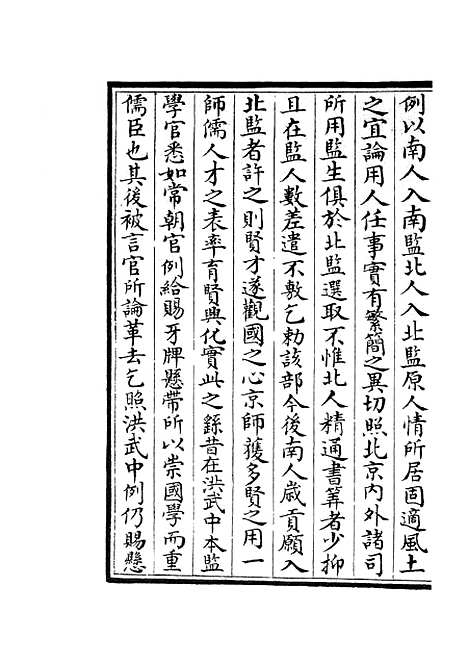 例以南人入南監北人入北監原人情所居固適風土
之宜論用人任事實有繁簡之異切照北京内外諸司
所用監生俱於北監選取不惟北人精通書筭者少抑
且在監人數差遣不敷乞勅該部今後南人歲貢願入
北監者許之則賢才遂觀國之心京師獲多賢之用一
師儒人才之表率育賢興化實此之繇昔在洪武中本監
學官悉如常朝官例給賜牙牌懸帶所以崇國學而重
儒臣也其後被言官所論革去乞照洪武中例仍賜懸